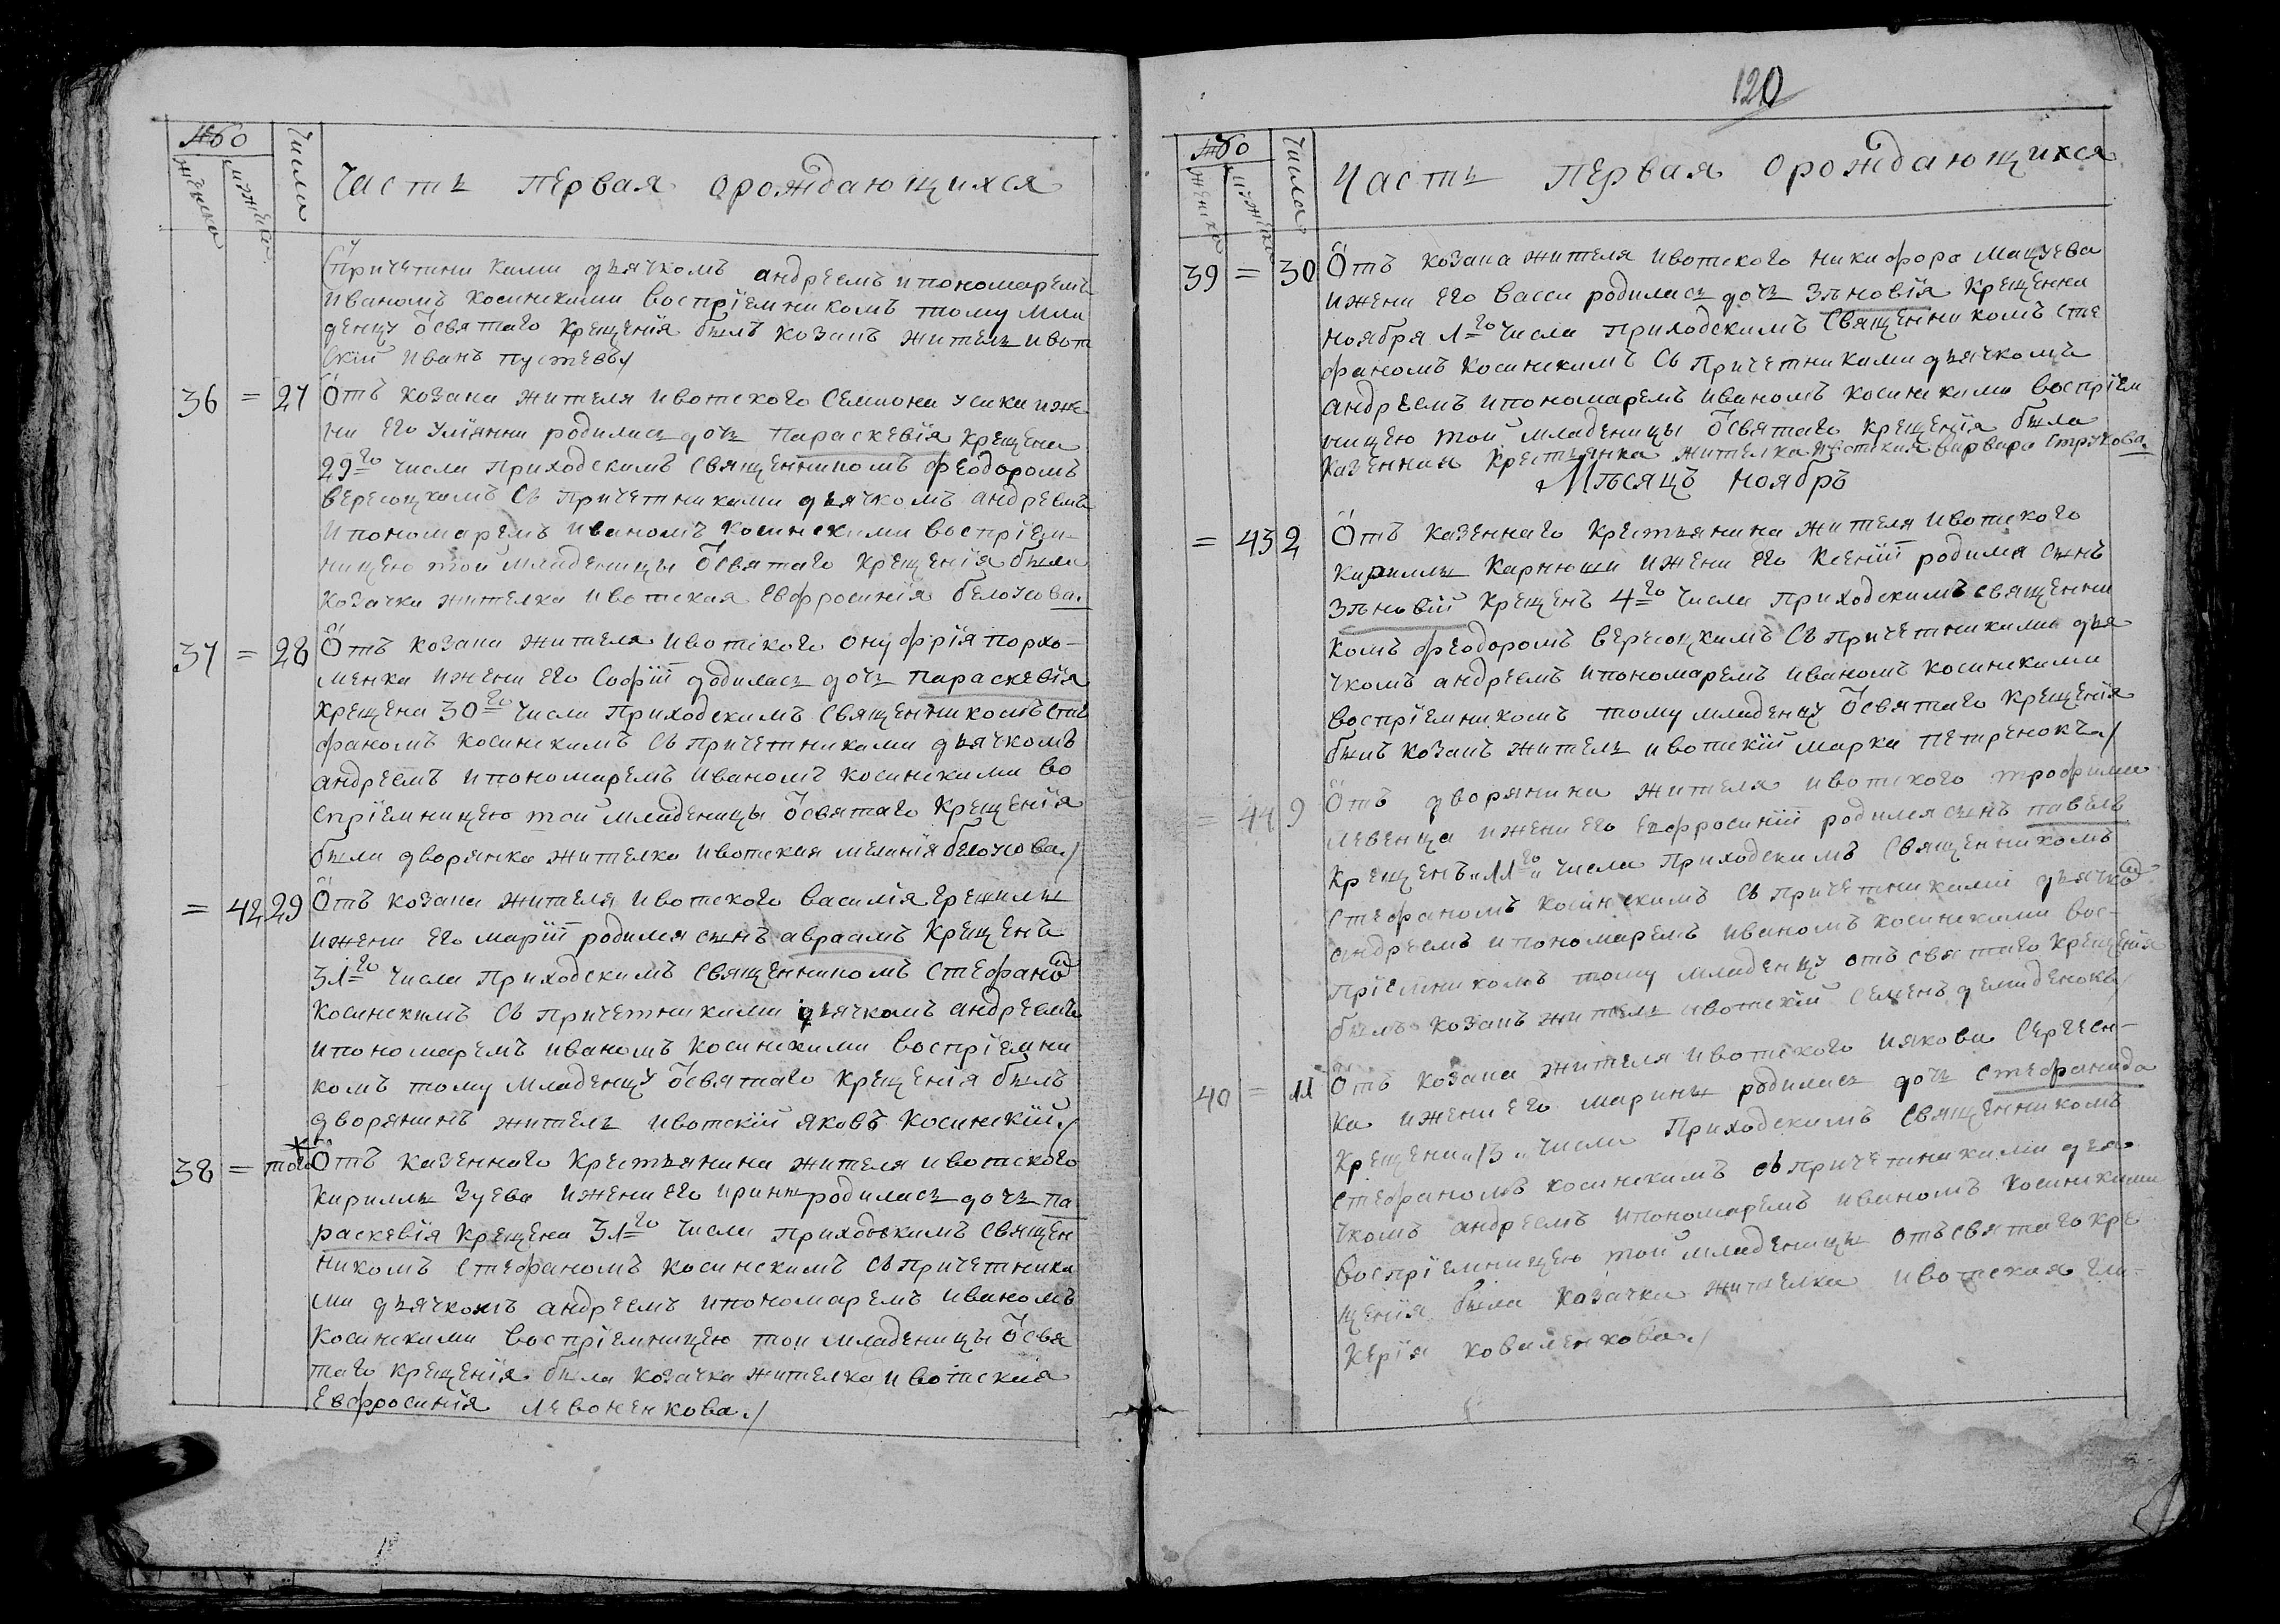 №бо
женска
мужеска
числа
Часть первая орождающихся
Спричетниками дьячкомъ андреемъ ипономаремъ
Иваномъ косинскими воспріемникомъ тому мла
денцу ѿсвятаго Крещенія былъ козакъ житель ивот
скій иванъ пустевъ./
36 = 27 Ѿтъ козака жителя ивотского Семиона усика иже
ни его улиянни родилась дочь параскевія крещена
29го числа приходскимъ Священникомъ феодоромъ
вересоцкимъ Съ причетниками дьячкомъ андреемъ
Ипономаремъ иваномъ косинскими воспріем-
ницею той младеницы ѿсвятаго крещенія была
козачка жителка ивотская Евфросинія белоусова.
37 = 28 Ѿтъ козака жителя ивотского онуфрія порхо-
менка ижени его Софіи родилась дочь параскевія
крещена 30го числа приходскимъ священникомъ сте
фаномъ косинскимъ съ причетниками дьячкомъ
андреемъ ипономаремъ иваномъ косинскими во
спріемницею той младеницы ѿсвятаго крещенія
была дворянка жителка ивотская меланія белоусова./
= 42 29 Ѿтъ козака жителя ивотского василія
ижени его маріи родился сынъ авраамъ крещенъ
31го числа приходскимъ священникомъ стефаном
косинскимъ съ причетниками дьячкомъ андреемъ
ипономаремъ иваномъ косинскими воспріемни
комъ тому младенцу ѿсвятаго крещенія былъ
дворянинъ житель ивотскій яковъ косинскій./
38 = того Ѿтъ казенного крестьянина жителя ивотского
кириллы зуева ижени его ирины родилась дочь па
раскевія крещена 31го числа приходскимъ священ
никомъ стефаномъ косинскимъ съ причетника
ми дьячкомъ андреемъ ипономаремъ иваномъ
косинскими воспріемницею той младеницы ѿсвя
таго крещенія была козачка жителка ивотская
Евфросинія левоненкова./
120
№бо
женска
мужеска
числа
Часть первая орождающихся
39 = 30 Ѿтъ козака жителя ивотского никифора мацуева
ижени его васси родилась дочь зѣновія крещенна
ноября 1го числа приходскимъ священникомъ сте
фаномъ косинскимъ съ причетниками дьячкомъ
андреемъ ипономаремъ иваномъ косинскими воспріем
ницею той младеницы ѿсвятаго крещенія была
казенная крестьянка жителка ивотская варвара струкова.
Мѣсяцъ ноябрь
= 43 2 Ѿтъ казеннаго крестьянина жителя ивотского
кириллы карнюши ижени его ксеніи родился сынъ
зѣновій крещенъ 4го числа приходскимъ священни
комъ феодоромъ вересоцкимъ съ причетниками дья
чкомъ андреемъ ипономаремъ иваномъ косинскими
воспріемникомъ тому младенцу ѿсвятаго крещенія
былъ козакъ житель ивотскій марка петренокъ./
= 44 9 Ѿтъ дворянина жителя ивотского трофима
левенца ижени его ефросиніи родился сынъ павелъ
крещенъ „11го„ числа приходскимъ священникомъ
стефаномъ косинскимъ съ причетниками дьячком
андреемъ ипономаремъ иваномъ косинскими вос-
пріемникомъ тому младенцу отъ святаго крещенія
былъ козакъ житель ивотскій семенъ демиденокъ/
40 = 11 Ѿтъ козака жителя ивотского иякова сергеен-
ка ижени его марины родилась дочь стефанида
крещена „13„ числа приходскимъ священникомъ
стефаномъ косинскимъ съ причетниками дья-
чкомъ андреемъ ипономаремъ иваномъ косинскими
воспріемницею той младеницы отъ святаго кре
щенія была козачка жителка ивотская гли-
керія коваленкова./